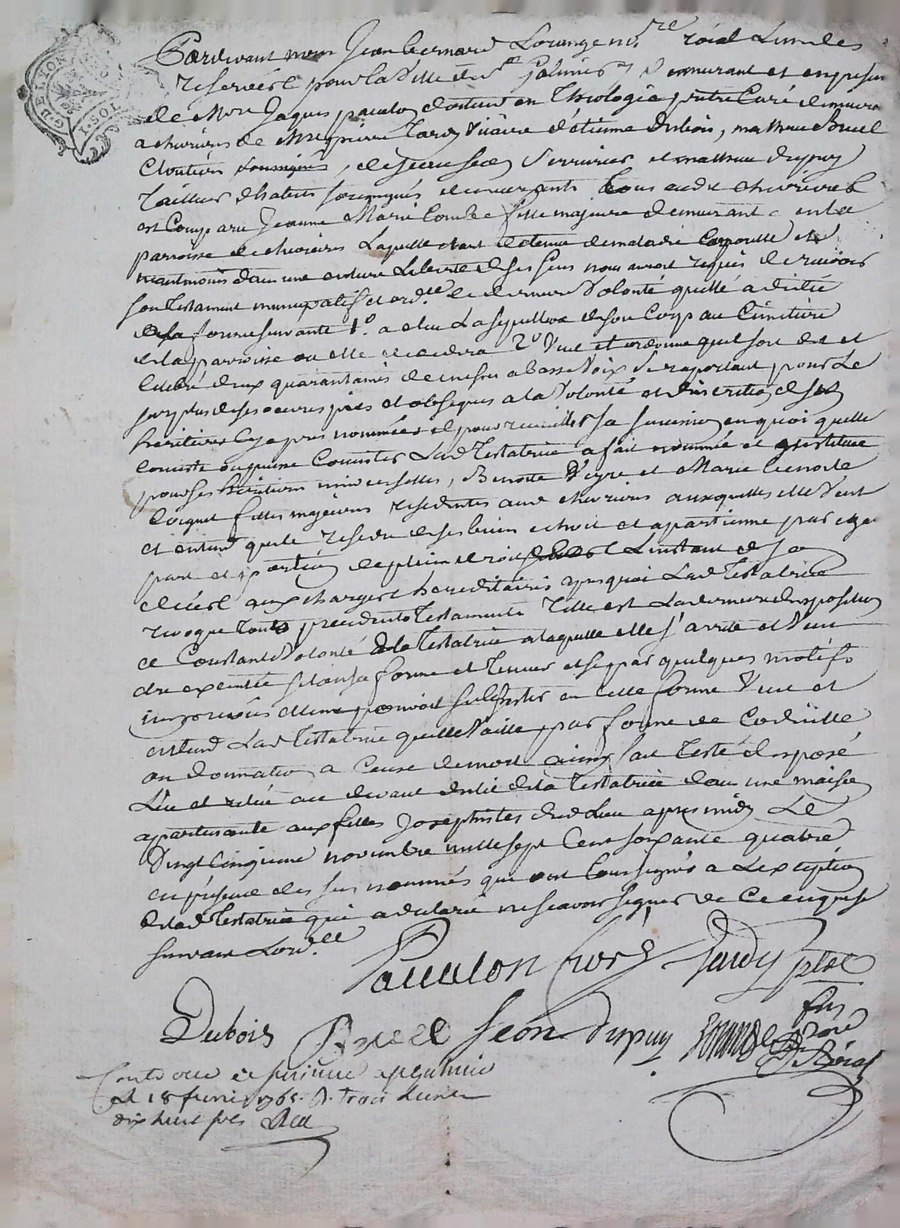 G. DE LYON
Pardevant nous Jean bernard Lorange no.re roial
reservés pour la Ville de St galmier y demeurant et en presence
de Mre Jaques paculon docteur en Theologie prêtre Curé demeurant
a chevrieres de Mre pierre Jardy Vicaire d'étienne dubois, mathieu
Cloutier soussignés, de Jean Serrurier et mathieu dupuy
Tailleur d'habits demeurants tous audit chevrieres
est Comparu Jeanne Marie Combe fille majeure demeurant en la
parroisse de chevrieres Laquelle etant detenue de maladie Corporelle et
neantmoins dans une entiere Liberté de ses sens nous auroit requis de recevoir
son Testament nuncupatif et ord.re de derniere Volonté quelle a dictée
de la forme suivante 1.o a elu La sepulture de son Corp au Cimetiere
de la parroisse ou elle decedera 2.o Veut et ordonne quel soit dit et
celebré deux quarantaines de messes a basse Voix Se raportant pour Le
surplus de ses oeuvres pies et obseques a la Volonté et discretion de ses
heritieres cy apres nommées et pour recueillir sa sucession en quoi quelle
consiste ou puisse Consister Lad. Testatrice a fait nommée et institue
pour ses heritieres universelles, Benoite Veyre et Marie
Coignet filles majeures residentes aud. chevrieres auxquelles elle Veut
et entend que le residu de ses biens echoit et apartienne par egale
part et portion de plein droit L'instant de son
décès aux charges hereditaires Lad. Testatrice
revoque touts precedents Testaments Telle est La derniere disposition
et Constante Volonté de la Testatrice a laquelle elle s'arrete et Veut
etre executée selon sa forme et Teneur et si par quelques motifs
imprevûs elle ne pouvoit subsister en cette forme Veut et
entend Lad. Testatrice quelle Vaille par forme de Codicille
ou donnation a Cause de mort ainsy fait Testé disposé
Lûe et relue au devant de la Testatrice dans une maison
apartenante aux filles Josephistes dud. Lieu apres midy Le
Vingt Cinquieme novembre mille sept Cent soixante quatre
en presence des sus nommés qui ont Consignés a L'exception
de lad. Testatrice qui a declaré ne sçavoir signer de Ce enquise
suivant L'ord.ce
Paculon Curé Jardy ptre
Dubois Jean dupuy
Roial
Controllé
Le 18 fevrier 1765. R. trois Livres
dix huit sols